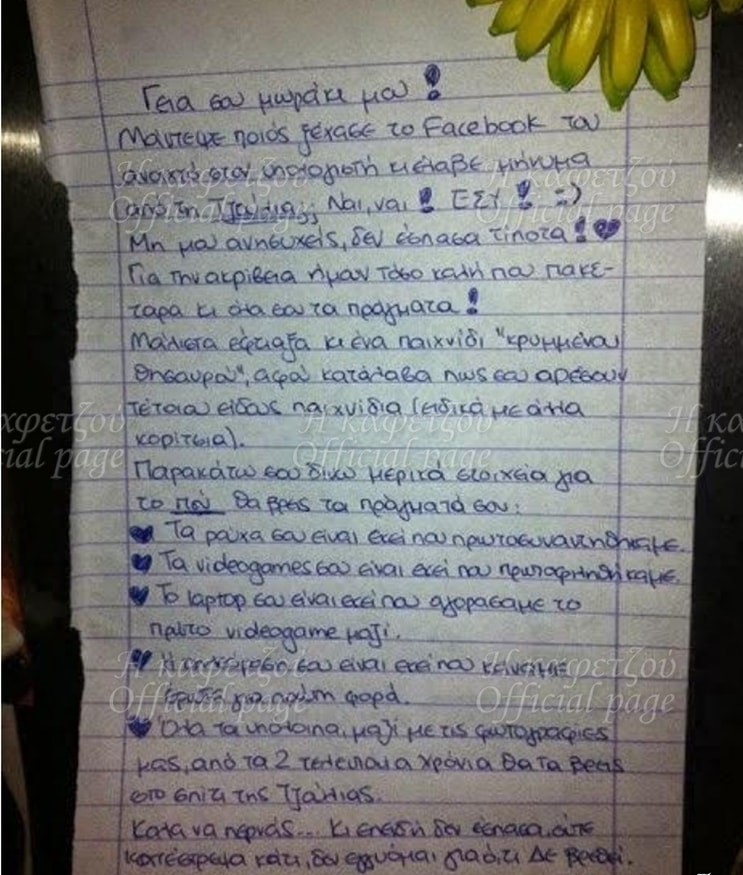 Γεια σου μωράκι μου!
Μάντεψε ποιός ξέχασε το Facebook του
ανοιχτό στον υπολογιστή κι έλαβε μήνυμα
από τη Τζούλια;; Ναι, ναι! ΕΣΥ! =)
Μη μου ανησυχείς, δεν έσπασα τίποτα! ♥
Για την ακρίβεια ήμουν τόσο καλή που πακε-
ταρα κι όλα σου τα πράγματα!
Μάλιστα έφτιαξα κι ένα παιχνίδι "κρυμμένου
θησαυρού", αφού κατάλαβα πως σου αρέσουν
τέτοιου είδους παιχνίδια (ειδικά με άλλα
κορίτσια).
Παρακάτω σου δίνω μερικά στοιχεία για
το πού θα βρεις τα πράγματά σου:
♥ Τα ρούχα σου είναι εκεί που πρωτοσυναντηθήκαμε.
♥ Τα videogames σου είναι εκεί που πρωτοφιληθήκαμε.
♥ Το laptop σου είναι εκεί που αγοράσαμε το
πρώτο videogame μαζί.
♥ Η τηλεόραση σου είναι εκεί που κάναμε
για πρώτη φορά.
♥ Όλα τα υπόλοιπα, μαζί με τις φωτογραφίες
μας, από τα 2 τελευταία χρόνια θα τα βρεις
στο σπίτι της Τζούλιας.
Καλά να περνάς... Κι επειδή δεν έσπασα, ούτε
κατέστρεψα κάτι, δεν εγγυώμαι για ό,τι ΔΕ βρεθεί.
Η καφετζού
Official page